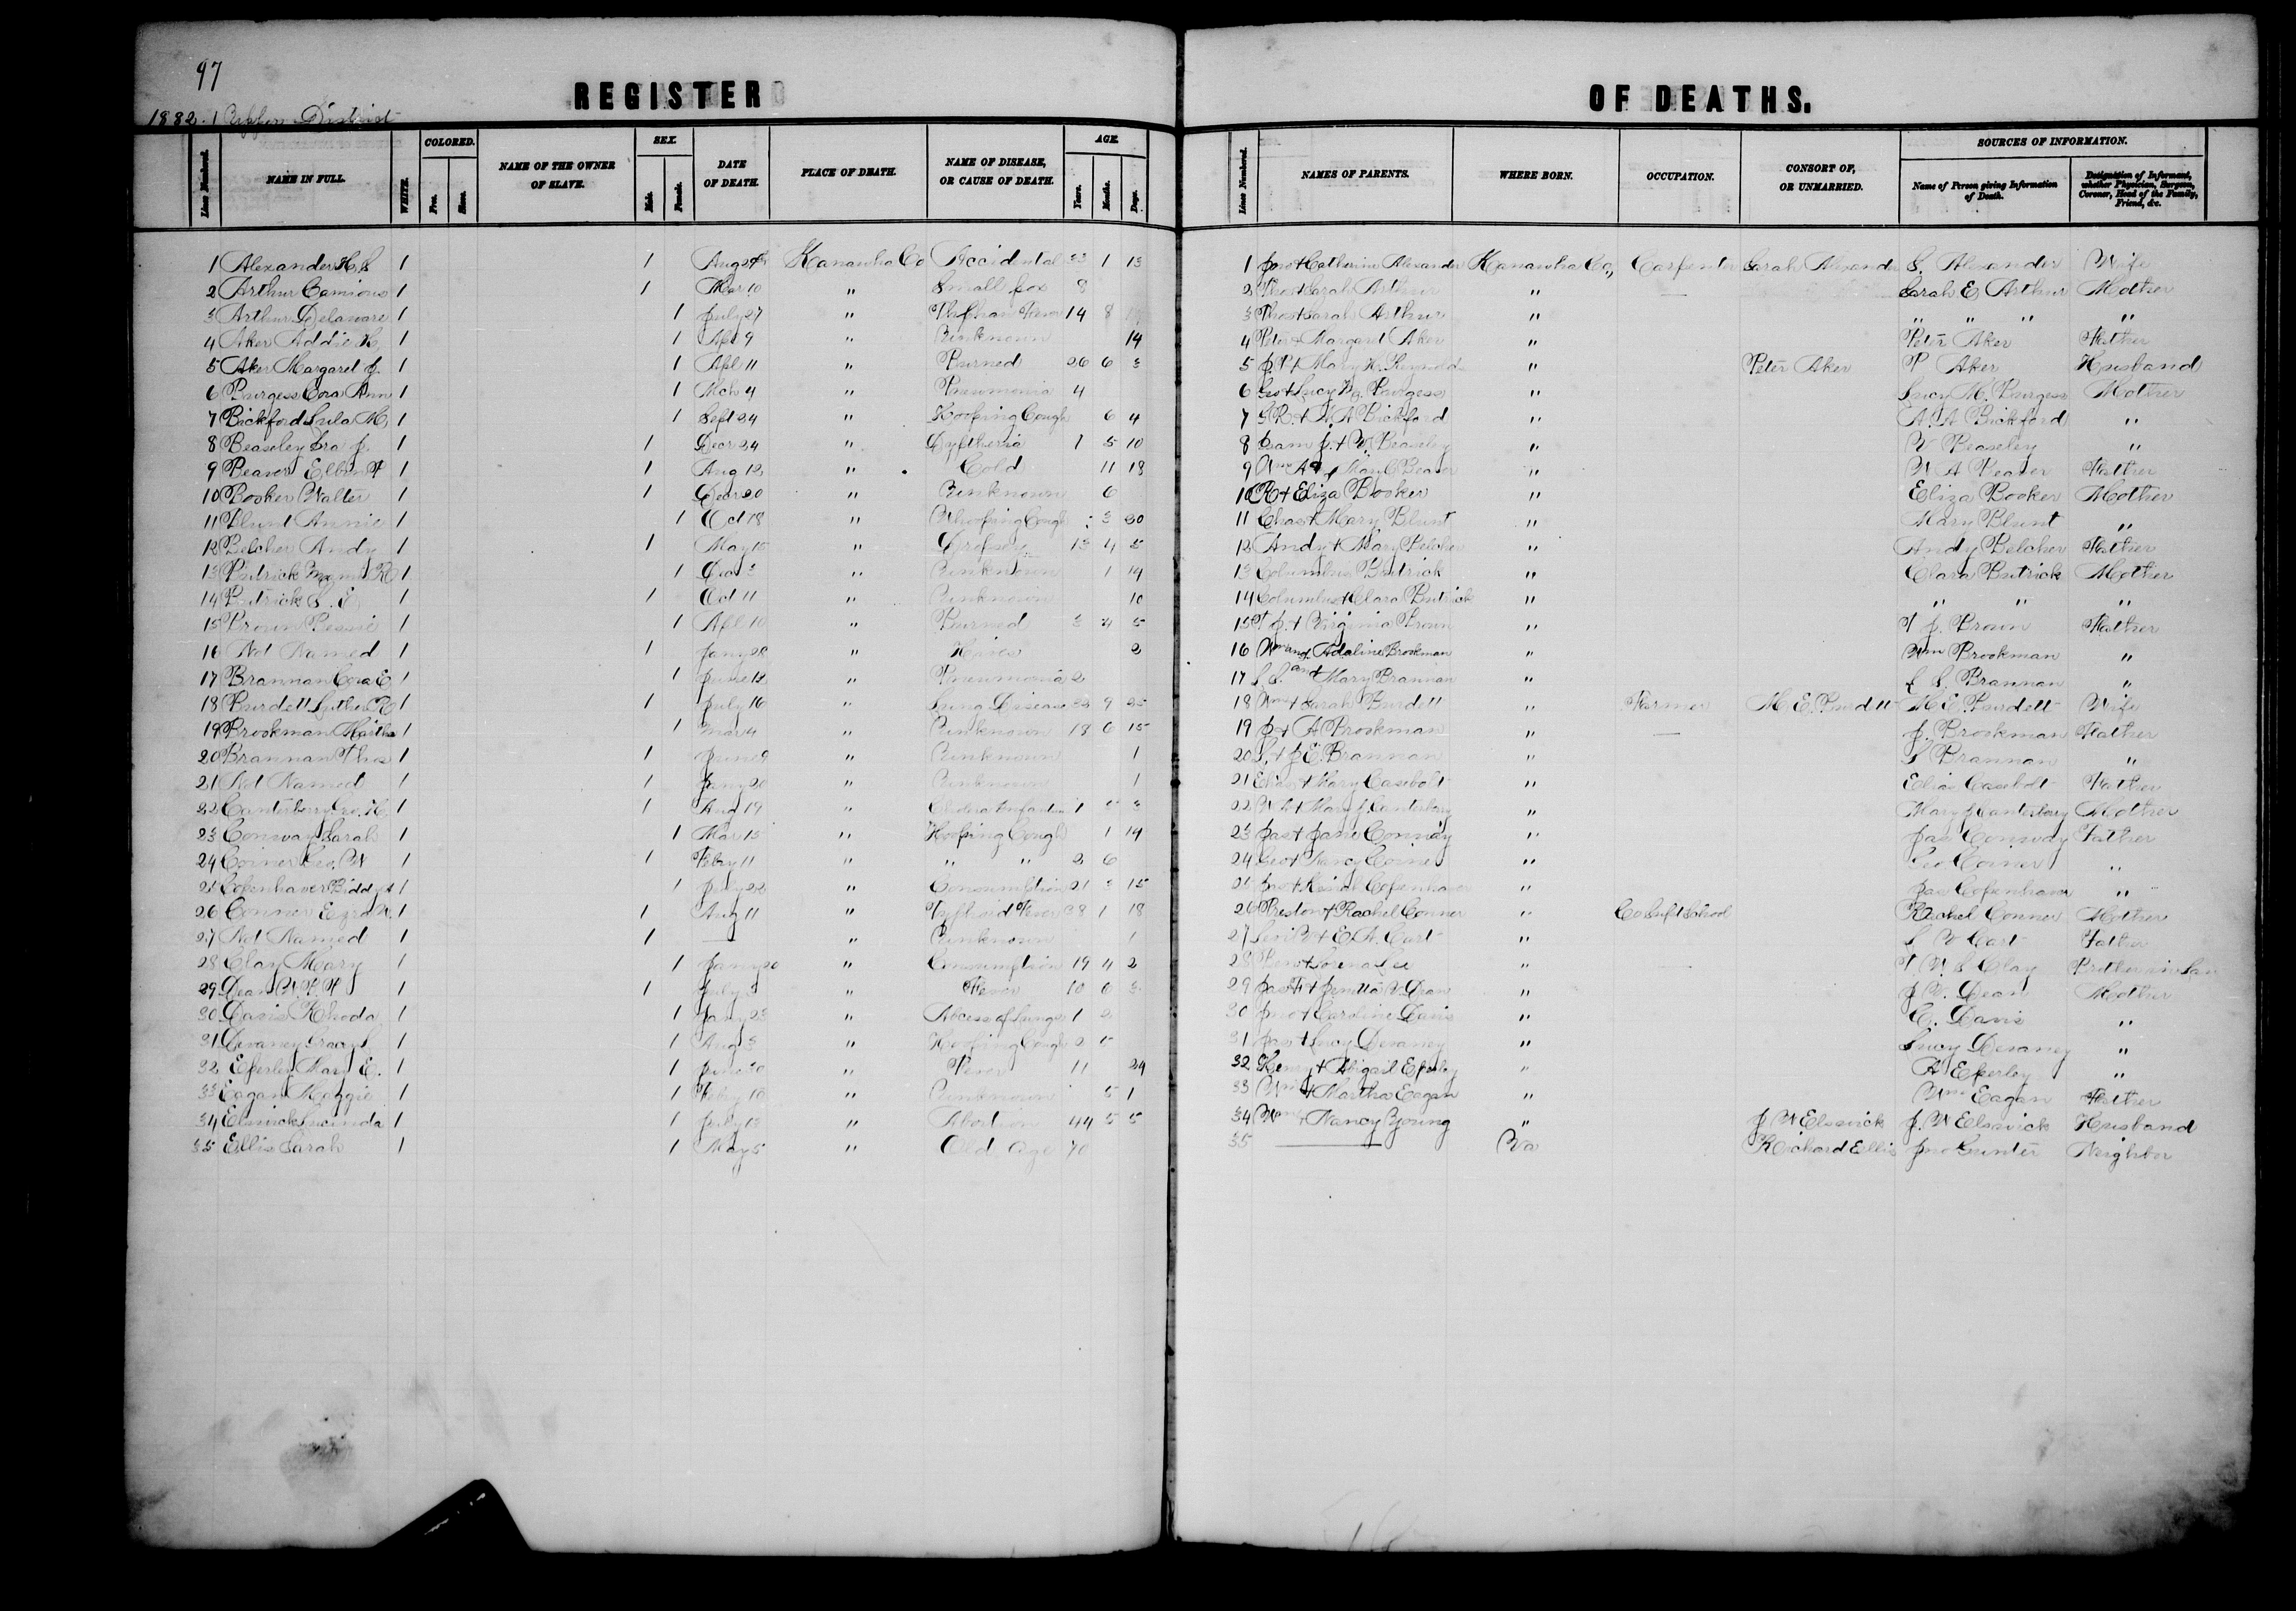 97
REGISTER OF DEATHS.
1882. Upper District
Lines Numbered. NAME IN FULL. WHITE. COLORED. Free. Slave. NAME OF THE OWNER OF SLAVE. SEX. Male. Female. DATE OF DEATH. PLACE OF DEATH. NAME OF DISEASE, OR CAUSE OF DEATH. AGE. Years. Months. Days. Lines Numbered. NAMES OF PARENTS. WHERE BORN. OCCUPATION. CONSORT OF, OR UNMARRIED. SOURCES OF INFORMATION. Name of Person giving Information of Death. Designation of Informant, whether Physician, Surgeon, Coroner, Head of the Family, Friend, &c.
1 Alexander H. S 1 1 Aug 24 Kanawha Co Accidental 33 1 13 1 Jno + Catherine Alexander Kanawha Co, Carpenter Sarah Alexander S. Alexander Wife
2 Arthur 1 1 Mar 10 " Small pox 8 2 Thos + Sarah Arthur " — Sarah E Arthur Mother
3 Arthur Delaware 1 1 July 27 " Fever 14 8 3 Thos + Sarah Arthur " " " " "
4 Aker Addie 1 1 Apl 9 " Unknown 14 4 Peter + Margaret Aker " Peter Aker Father
5 Aker Margaret J. 1 1 Apl 11 " Burned 26 6 3 5 J P + Mary H. Reynolds " Peter Aker P Aker Husband
6 Burgess Cora Ann 1 1 Mch 4 " Pneumonia 4 6 Geo + Lucy M. Burgess " Lucy M. Burgess Mother
7 Bickford Lula M. 1 1 Sept 24 " Hooping Cough 6 4 7 + A. A Bickford " A. A Bickford "
8 Beaseley Ira J. 1 1 Decr 24 " Dyftheria 1 5 10 8 Sam J. + V. Beaseley " V Beaseley "
9 Beaver 1 1 Aug 12 " Cold 11 18 9 Wm A & Mary C Beaver " W A Beaver Father
10 Booker Walter 1 1 Decr 20 " Unknown 6 10 R + Eliza Booker " Eliza Booker Mother
11 Blunt Annie 1 1 Oct 18 " Whooping Cough 3 30 11 Chas + Mary Blunt " Mary Blunt "
12 Belcher Andy 1 1 May 15 " Dropsey 13 4 5 12 Andy + Mary Belcher " Andy Belcher Father
13 Butrick R 1 1 Dec 3 " Unknown 1 14 13 Columbus Butrick " Clara Butrick Mother
14 Butrick S. E 1 1 Oct 11 " Unknown 10 14 Columbus + Clara Butrick " " " "
15 Brown Bessie 1 1 Apl 10 " Burned 3 4 5 15 T J. + Virginia Brown " T J. Brown Father
16 Not Named 1 1 Jany 28 " Hives 2 16 Wm and Adaline Brookman " Wm Brookman "
17 Brannan Cora E 1 1 June 12 " Pneumonia 2 17 L. S. and Mary Brannan " L S. Brannan "
18 Burdett Luther R 1 1 July 16 " Lung Disease 9 25 18 Wm + Sarah Burdett " Farmer M E. Burdett M E Burdett Wife
19 Brookman Martha 1 1 Mar 4 " Unknown 18 6 15 19 J + A Brookman " — J. Brookman Father
20 Brannan Thos 1 1 June 9 " Unknown 1 20 S. + J E. Brannan " S Brannan "
21 Not Named 1 1 Jany 20 " Unknown 1 21 Elias + Mary Casebolt " Elias Casebolt Father
22 Canterberry Geo. H. 1 1 Aug 19 " Cholera Infantum 1 22 W A + Mary J. Canterbery " Mary J Canterbery Mother
23 Conway Sarah 1 1 Mar 15 " Hooping Cough 1 14 23 Jas + Jane Conway " Jas Conway Father
24 Coiner Geo. W 1 1 Feby 11 " " " 2 6 24 Geo + Nancy Coiner " Geo Coiner "
25 Copenhaver 1 1 July 22 " Consumption 21 3 15 25 Jno + Copenhaver " Jas Copenhaver "
26 Conner Ezra 1 1 Aug 11 " Typhoid Fever 38 1 18 26 Preston + Rachel Conner " Co Supt School Rachel Conner Mother
27 Not Named 1 1 — " Unknown 1 27 Levi V + E. A. Cart " L V Cart Father
28 Clay Mary 1 1 Jany 20 " Consumption 19 4 2 28 + Lorena Lee " T. W. S Clay Brother in Law
29 Dean W. F. 1 1 July 3 " Fever 10 6 3 29 Jas F + Jenetta V. Dean " J V. Dean Mother
30 Davis Rhoda 1 1 Jany 23 " Abcess of Lungs 1 2 30 Jno + Caroline Davis " C. Davis "
31 Devaney Gracy 1 1 Aug 3 " Hooping Cough 2 31 Jas + Lucy Devaney " Lucy Devaney "
32 Eperley Mary E. 1 1 June 10 " Fever 11 24 32 Henry + Abigail Eperley " A Eperley "
33 Eagan Maggie 1 1 Feby 10 " Unknown 5 1 33 Wm + Martha Eagan " Wm Eagan Father
34 Elswick Lucinda 1 1 July 13 " Abortion 44 5 5 34 Wm + Nancy Young " J W Elswick J. W Elswick Husband
35 Ellis Sarah 1 1 May 5 " Old Age 70 35 — Va Richard Ellis Jno Gunter Neighbor